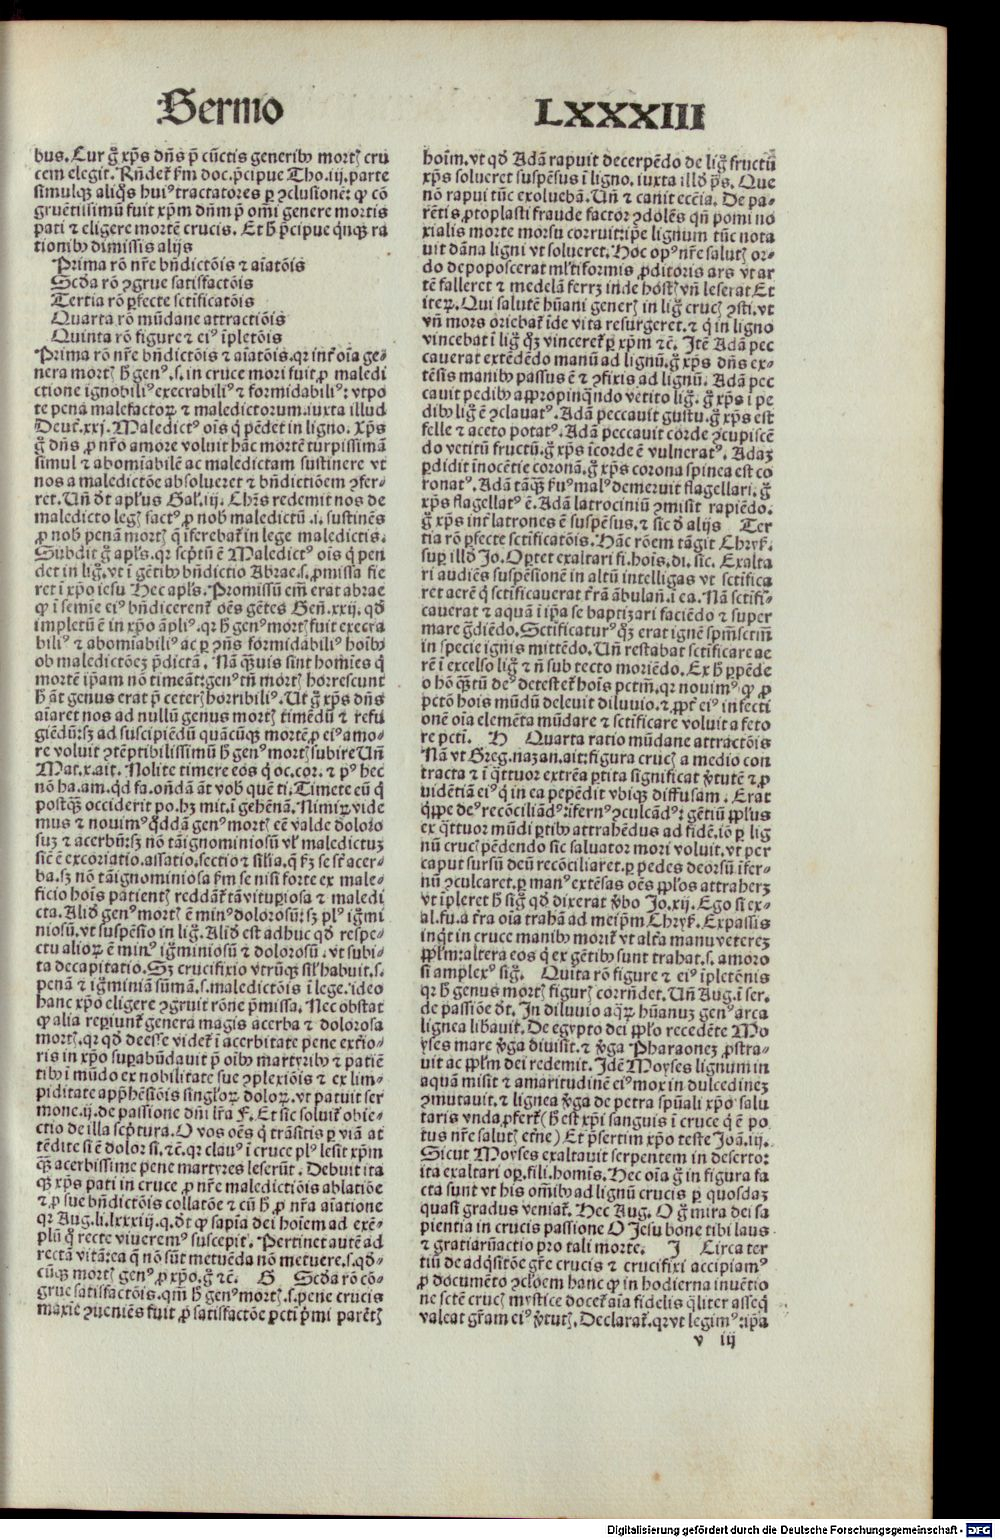 Sermo LXXXIII
bus. Cur g̃ xp̃s dñs p̃ cũctis generibꝰ mortꝭ cru
cem elegit. Rñdet᷑ ẜm doc. p̃cipue Tho. iij. parte
simulqꝫ aliq̃s huiꝰ tractatores ꝑ ꝯclusionẽ: ꝙ cõ
gruẽtissimũ fuit xp̃m dñm p̃ om̃i genere mortis
pati ⁊ eligere mortẽ crucis. Et h̃ p̃cipue q̃nqꝫ ra
tionibꝰ dimissis alijs
Prima rõ nr̃e bñdictõis ⁊ aĩatõis
Scd̃a rõ ꝯgrue satisfactõis
Tertia rõ ꝑfecte sctificatõis
Quarta rõ mũdane attractiõis
Quinta rõ figure ⁊ eiꝰ ĩpletõis
Prima rõ nr̃e bñdictõis ⁊ aĩatõis. qꝛ int᷑ oĩa ge⸗
nera mortꝭ h̃ genꝰ. s. in cruce mori fuit ꝓ maledi
ctione ignobiliꝰ execrabiliꝰ ⁊ formidabiliꝰ: vtpo
te pena malefactoꝝ ⁊ maledictorum. iuxta illud
Deut᷑. xxj. Maledictꝰ oĩs q̃ pẽdet in ligno. Xp̃s
g̃ dñs ꝓ nr̃o amore voluit hãc mortẽ turpissimã
simul ⁊ abomĩabilẽ ac maledictam sustinere vt
nos a maledictõe absolueret ⁊ bñdictiõem ꝯfer⸗
ret. Uñ d̃t apl̃us Gal. iij. Chr̃s redemit nos de
maledicto legꝭ factꝰ ꝓ nob̃ maledictũ. i. sustinẽs
ꝓ nob̃ penã mortꝭ q̃ ĩferebat᷑ in lege maledictis.
Subdit g̃ apl̃s. qꝛ scp̃tũ ẽ Maledictꝰ oĩs q̃ pen
det in lig̃. vt ĩ gẽtibꝰ bñdictio Abrae. s. ꝓmissa fie
ret ĩ xp̃o iesu Hec apl̃s. Promissũ em̃ erat abrae
ꝙ ĩ semĩe eiꝰ bñdicerent᷑ oẽs gẽtes Geñ. xxij. qd̃
impletũ ẽ in xp̃o ãpliꝰ. qꝛ h̃ genꝰ mortꝭ fuit execra
biliꝰ ⁊ abomĩabiliꝰ ac ꝑ ꝯñs formidabiliꝰ hoĩbꝰ
ob maledictõeꝫ p̃dictã. Nã q̃uis sint homĩes q̃
mortẽ ip̃am nõ timeãt: genꝰ tñ mortꝭ horrescunt
h̃ ãt genus erat p̃ ceterꝭ horribiliꝰ. Ut g̃ xp̃s dñs
aĩaret nos ad nullũ genus mortꝭ timẽdũ ⁊ refu
giẽdũ: sꝫ ad suscipiẽdũ quãcũqꝫ mortẽ ꝓ eiꝰ amo⸗
re voluit ꝯtẽptibilissimũ h̃ genꝰ mortꝭ subire Uñ
Mat. x. ait. Nolite timere eos q̃ oc. cor. ⁊ pꝰ hec
nõ ha. am. qd̃ fa. oñdã ãt vob̃ quẽ ti. Timete eũ q̃
postq̃ occiderit po. hꝫ mit. ĩ gehẽnã. Nimiꝝ vide
mus ⁊ nouimꝰ q̃ddã genꝰ mortꝭ eẽ valde doloro
suꝫ ⁊ acerbũ: sꝫ nõ tã ignominiosũ vl᷑ maledictuꝫ
sic̃ ẽ excoriatio. assatio. sectio ⁊ sil̃ia. q̃ lꝫ se sr̃ acer⸗
ba. sꝫ nõ tã ignominiosa ẜm se nisi forte ex male⸗
ficio hoĩs patientꝭ reddãt᷑ tã vituꝑiosa ⁊ maledi
cta. Aliđ genꝰ mortꝭ ẽ minꝰ dolorosũ: sꝫ plꝰ ig̃mi
niosũ. vt suspẽsio in lig̃. Aliđ est adhuc qd̃ respe⸗
ctu alioꝝ ẽ minꝰ ig̃miniosũ ⁊ dolorosũ. vt subi⸗
ta decapitatio. Sꝫ crucifixio vtrũqꝫ sil᷑ habuit. s.
penã ⁊ ig̃miniã sũmã. s. maledictõis ĩ lege. ideo
hanc xp̃o eligere ꝯgruit rõne p̃missa. Nec obstat
ꝙ alia reꝑiunt᷑ genera magis acerba ⁊ dolorosa
mortꝭ. qꝛ qd̃ deesse videt᷑ ĩ acerbitate pene exterio⸗
ris in xp̃o suꝑabũdauit p̃ oĩbꝰ martyribꝰ ⁊ patiẽ
tibꝰ ĩ mũdo ex nobilitate sue ꝯplexiõis ⁊ ex lim⸗
piditate app̃hẽsiõis singl̃oꝝ doloꝝ. vt patuit ser
mone. ij. de passione dñi lr̃a F. Et sic soluit᷑ obie⸗
ctio de illa scp̃tura. O vos oẽs q̃ trãsitis ꝑ viã at
tẽdite si ẽ dolor si. ⁊c̃. qꝛ clauꝰ ĩ cruce plꝰ lesit xp̃m
q̃ acerbissime pene martyres leserũt. Debuit ita
qꝫ xp̃s pati in cruce ꝓ nr̃e maledictiõis ablatiõe
⁊ ꝓ sue bñdictõis collatõe ⁊ cũ h̃ ꝓ nr̃a aĩatione
qꝛ Aug. li. lxxxiij. q. d̃t ꝙ sapĩa dei hoĩem ad exẽ⸗
plũ q̃ recte viueremꝰ suscepit. Pertinet autẽ ad
rectã vitã: ea q̃ nõ sũt metuẽda nõ metuere. s. qđ⸗
cũqꝫ mortꝭ genꝰ ꝓ xp̃o. g̃ ⁊c̃. G Scd̃a rõ cõ⸗
grue satisfactõis. qm̃ h̃ genꝰ mortꝭ. s. pene crucis
maxĩe ꝯueniẽs fuit ꝓ satisfactõe pcti p̃mi parẽtꝭ
hoĩm. vt qd̃ Adã rapuit decerpẽdo de lig̃ fructũ
xp̃s solueret suspẽsus ĩ ligno. iuxta illđ p̃s. Que
nõ rapui tũc exoluebã. Uñ ⁊ canit ecc̃ia. De pa⸗
rẽtis ꝓtoplasti fraude factor ꝯdolẽs qñ pomi no
xialis morte morsu corruit: ip̃e lignum tũc nota
uit dãna ligni vt solueret. Hoc opꝰ nr̃e salutꝭ or⸗
do depoposcerat ml̃tiformis ꝓditoris ars vt ar
tẽ falleret ⁊ medelã ferrꝫ inde hostꝭ vñ leserat Et
iteꝝ. Qui salutẽ hũani generꝭ in lig̃ crucꝭ ꝯsti. vt
vñ mors oriebat᷑ ĩde vita resurgeret. ⁊ q̃ in ligno
vincebat ĩ lig̃ q̃ꝫ vinceret᷑ ꝑ xp̃m ⁊c̃. Itẽ Adã pec
cauerat extẽdẽdo manũ ad lignũ. g̃ xp̃s dñs ex⸗
tẽsis manibꝰ passus ẽ ⁊ ꝯfixis ad lignũ. Adã pec
cauit pedibꝰ appropinq̃ndo vetito lig̃. g̃ xp̃s ĩ pe
dibꝰ lig̃ ẽ ꝯclauatꝰ. Adã peccauit gustu. g̃ xp̃s est
felle ⁊ aceto potatꝰ. Adã peccauit corde ꝯcupiscẽ
do vetitũ fructũ. g̃ xp̃s ĩ corde ẽ vulneratꝰ. Adaꝫ
ꝑdidit ĩnocẽtie coronã. g̃ xp̃s corona spinea est co
ronatꝰ. Adã tãq̃ ẜuꝰ malꝰ demeruit flagellari. g̃
xp̃s flagellatꝰ ẽ. Adã latrociniũ ꝯmisit rapiẽdo.
g̃ xp̃s int᷑ latrones ẽ suspẽsus. ⁊ sic d̃ alijs Ter
tia rõ ꝑfecte sctificatõis. Hãc rõem tãgit Chryẜ.
suꝑ illđ Jo. Oꝑtet exaltari fi. hoĩs. di. sic. Exalta
ri audiẽs suspẽsionẽ in altũ intelligas vt sctifica
ret aerẽ q̃ sctificauerat t̃rã ãbulan. ĩ ea. Nã sctifi⸗
cauerat ⁊ aquã ĩ ip̃a se baptizari faciẽdo ⁊ super
mare g̃diẽdo. Sctificaturꝰ q̃ꝫ erat ignẽ spm̃sctm̃
in specie ignis mittẽdo. Uñ restabat sctificare ae
rẽ ĩ excelso lig̃ ⁊ ñ sub tecto moriẽdo. Ex h̃ ꝑpẽde
o hõ q̃tũ deꝰ detestet᷑ hoĩs pctm̃. qꝛ nouimꝰ ꝙ ꝓ
pctõ hoĩs mũdũ deleuit diluuio. ⁊ ꝓpt᷑ eiꝰ infecti
onẽ oĩa elemẽta mũdare ⁊ sctificare voluit a feto
re pcti. H Quarta ratio mũdane attractõis
Nã vt Greg. nazan. ait: figura crucꝭ a medio con
tracta ⁊ ĩ q̃ttuor extrẽa ꝑtita significat v̓tutẽ ⁊ ꝓ
uidẽtiã eiꝰ q̃ in ea pepẽdit vbiqꝫ diffusam. Erat
q̃ppe deꝰ recõciliãdꝰ: ĩfernꝰ ꝯculcãdꝰ: gẽtiũ ppl̃us
ex q̃ttuor mũdi ꝑtibꝰ attrahẽdus ad fidẽ. iõ ꝑ lig
nũ crucꝭ pẽdendo sic saluator mori voluit. vt per
caput sursũ deũ recõciliaret. ꝑ pedes deorsũ ĩfer⸗
nũ ꝯculcaret. ꝑ manꝰ extẽsas oẽs ppl̃os attraherꝫ
vt ĩpleret h̃ sig̃ qd̃ dixerat v̓bo Jo. xij. Ego si ex⸗
al. fu. a t̃ra oĩa trahã ad meip̃m Chryẜ. Expassis
inq̃t in cruce manibꝰ morit᷑ vt alt᷑a manu vetereꝫ
ppl̃m: altera eos q̃ ex gẽtibꝰ sunt trahat. s. amoro
si amplexꝰ sig̃. Quĩta rõ figure ⁊ eiꝰ ĩpletẽnis
qꝛ h̃ genus mortꝭ figurꝭ corrñdet. Uñ Aug. ĩ ser.
de passiõe d̃t. In diluuio aq̃ꝝ hũanuꝫ genꝰ arca
lignea lib̃auit. De egypto dei ppl̃o recedẽte Mo
yses mare v̓ga diuisit. ⁊ v̓ga Pharaoneꝫ ꝓstra⸗
uit ac ppl̃m dei redemit. Idẽ Moyses lignum in
aquã misit ⁊ amaritudinẽ eiꝰ mox in dulcedineꝫ
ꝯmutauit. ⁊ lignea v̓ga de petra spũali xp̃o salu
taris vnda ꝓfert᷑ (h̃ est xp̃i sanguis ĩ cruce q̃ ẽ po
tus nr̃e salutꝭ et̃ne) Et p̃sertim xp̃o teste Joã. iij.
Sicut Moyses exaltauit serpentem in deserto:
ita exaltari op. fili. homĩs. Hec oĩa g̃ in figura fa
cta sunt vt his om̃ibꝰ ad lignũ crucis ꝑ quosdaꝫ
quasi gradus veniat᷑. Hec Aug. O g̃ mira dei sa
pientia in crucis passione O Jesu bone tibi laus
⁊ gratiarũactio pro tali morte. J Circa ter
tiũ de adq̃sitõe gr̃e crucis ⁊ crucifixi accipiamꝰ
ꝓ documẽto ꝯcl̃oem hanc ꝙ in hodierna inuẽtio
ne sctẽ crucꝭ mystice docet᷑ aĩa fidelis q̃liter asseq̃
valeat gr̃am eiꝰ v̓tutꝭ. Declarat᷑. qꝛ vt legimꝰ: ip̃a
v iij
Digitalisierung gefördert durch die Deutsche Forschungsgemeinschaft - DFG